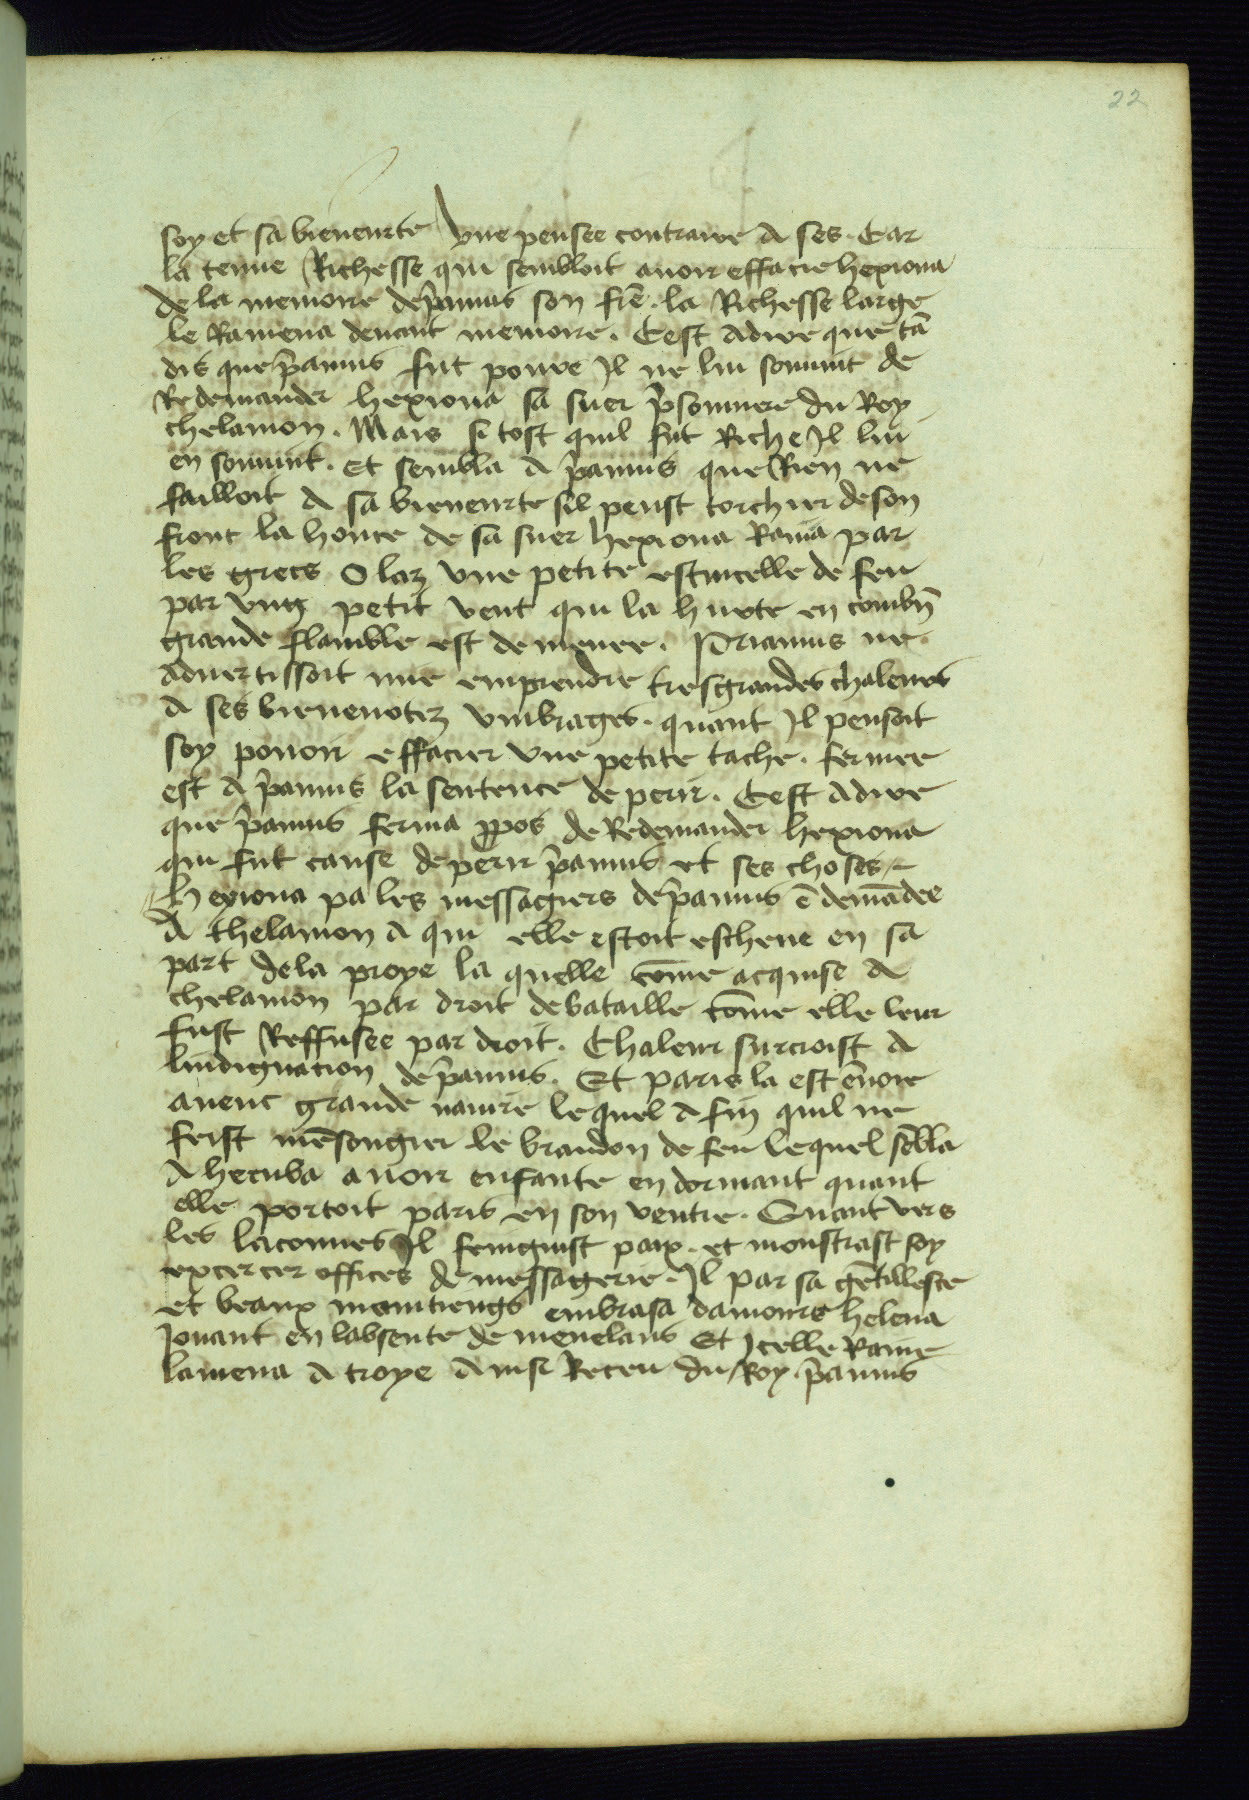 22
soy et sa bieneurte vne pensee contraire a ses. Car
la tenue Richesse qui sembloit auoir effacie hexiona
de la memoire de p̃amus son fr̃e. la Richesse large
le Ramena deuant memoire. Cest adire que tã
dis que p̃amus fut poure Il ne lui souuint de
Redemander hexiona sa suer p̃sonniere du Roy
thelamon. Mais si tost quil fut Riche Il lui
en souuint. et sembla a p̃amus que Rien ne
failloit a sa bieneurte sil peust torchier de son
front la honte de sa suer hexiona Rauia par
les grecs O laz vne petite estincelle de feu
par vng petit vent qui la hurte en combñ
grande flamble est demenee. Priamus ne
aduertissoit mie emprendre tresgrandes chaleurs
a ses bieneurtez vmbrages. quant Il pensoit
soy pouoir effacier vne petite tache. fermee
est a p̃amus la sentence de perir. Cest adire
que p̃amus ferma ꝓpos de Redemander hexiona
qui fut cause de perir p̃amus et ses choses
hexiona pa les messagiers de p̃amus ẽ demãdee
a thelamon a qui elle estoit escheue en sa
part de la proye la quelle cõme acquise a
thelamon par droit de bataille cõme elle leur
fust Reffusee par droit. Chaleur surcroist a
lindignacion de p̃amus. Et paris la est ẽuoie
auec grande nauire lequel a fin quil ne
feist mẽsongier le brandon de feu lequel sẽbla
a hecuba auoir enfante en dormant quant
elle portoit paris en son ventre. Quant vers
les laconnes Il feingnist paix. et monstrast soy
excercer offices de messagerie. Il par sa gẽtillesce
et beaux maintiengs embrasa damours helena
Jouant en labsente de menelaus Et Icelle Rauie
lamena a troye Ainsi Receu du Roy p̃amus